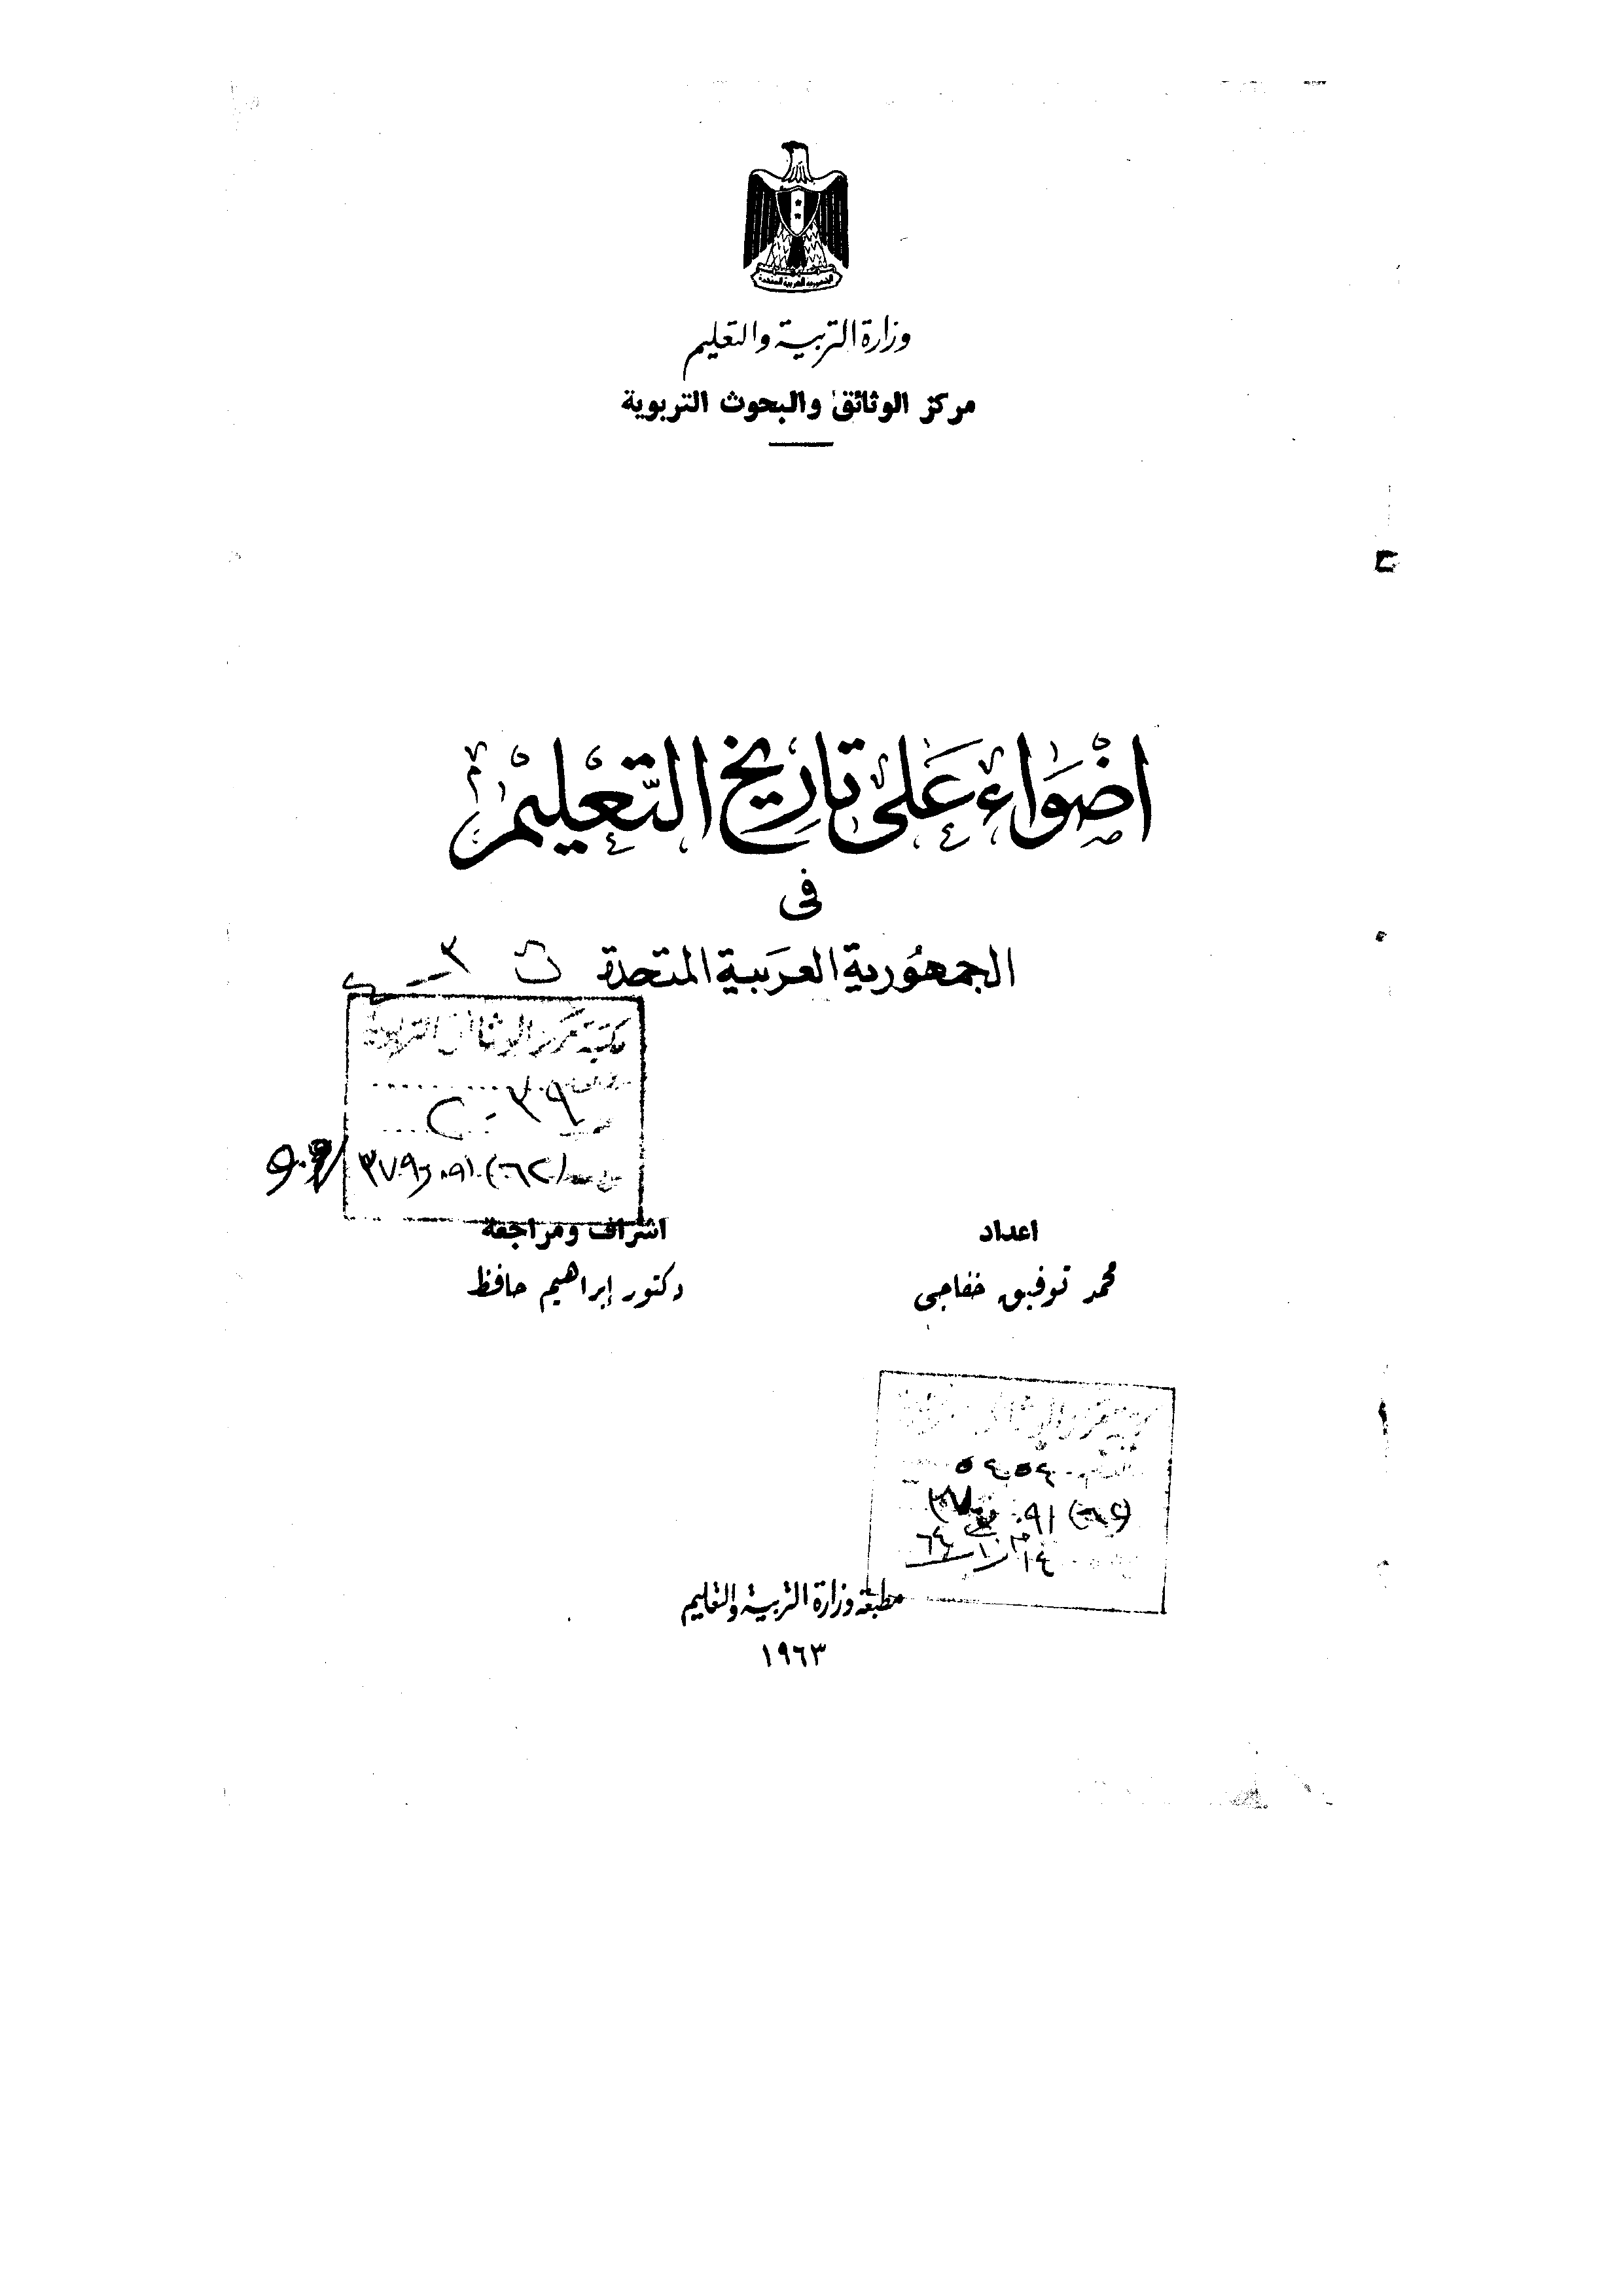 الجمهورية العربية المتحدة
وزارة التربية والتعليم
مركز الوثائق والبحوث التربوية
اضْوَاء عَلى تارِيخ التَّعْليمْ
فى
الجمهُورية العَربية المتحدة
ث ٣
مكتبة مركز الوثائق التربوية
٣٧٩ر٠٩١(٦٢)
اعداد
محمد توفيق خفاجى
اشراف ومراجعة
دكتور إبراهيم حافظ
٥٤٥٤
مطبعة وزارة التربية والتعليم
١٩٦٣